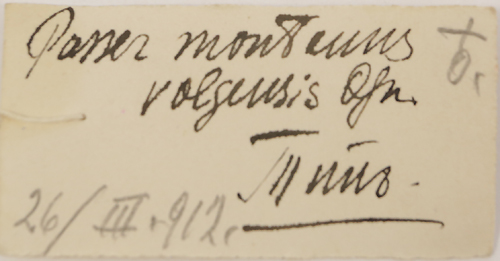 Passer montanus
volgensis Ogn.
26/III.912.